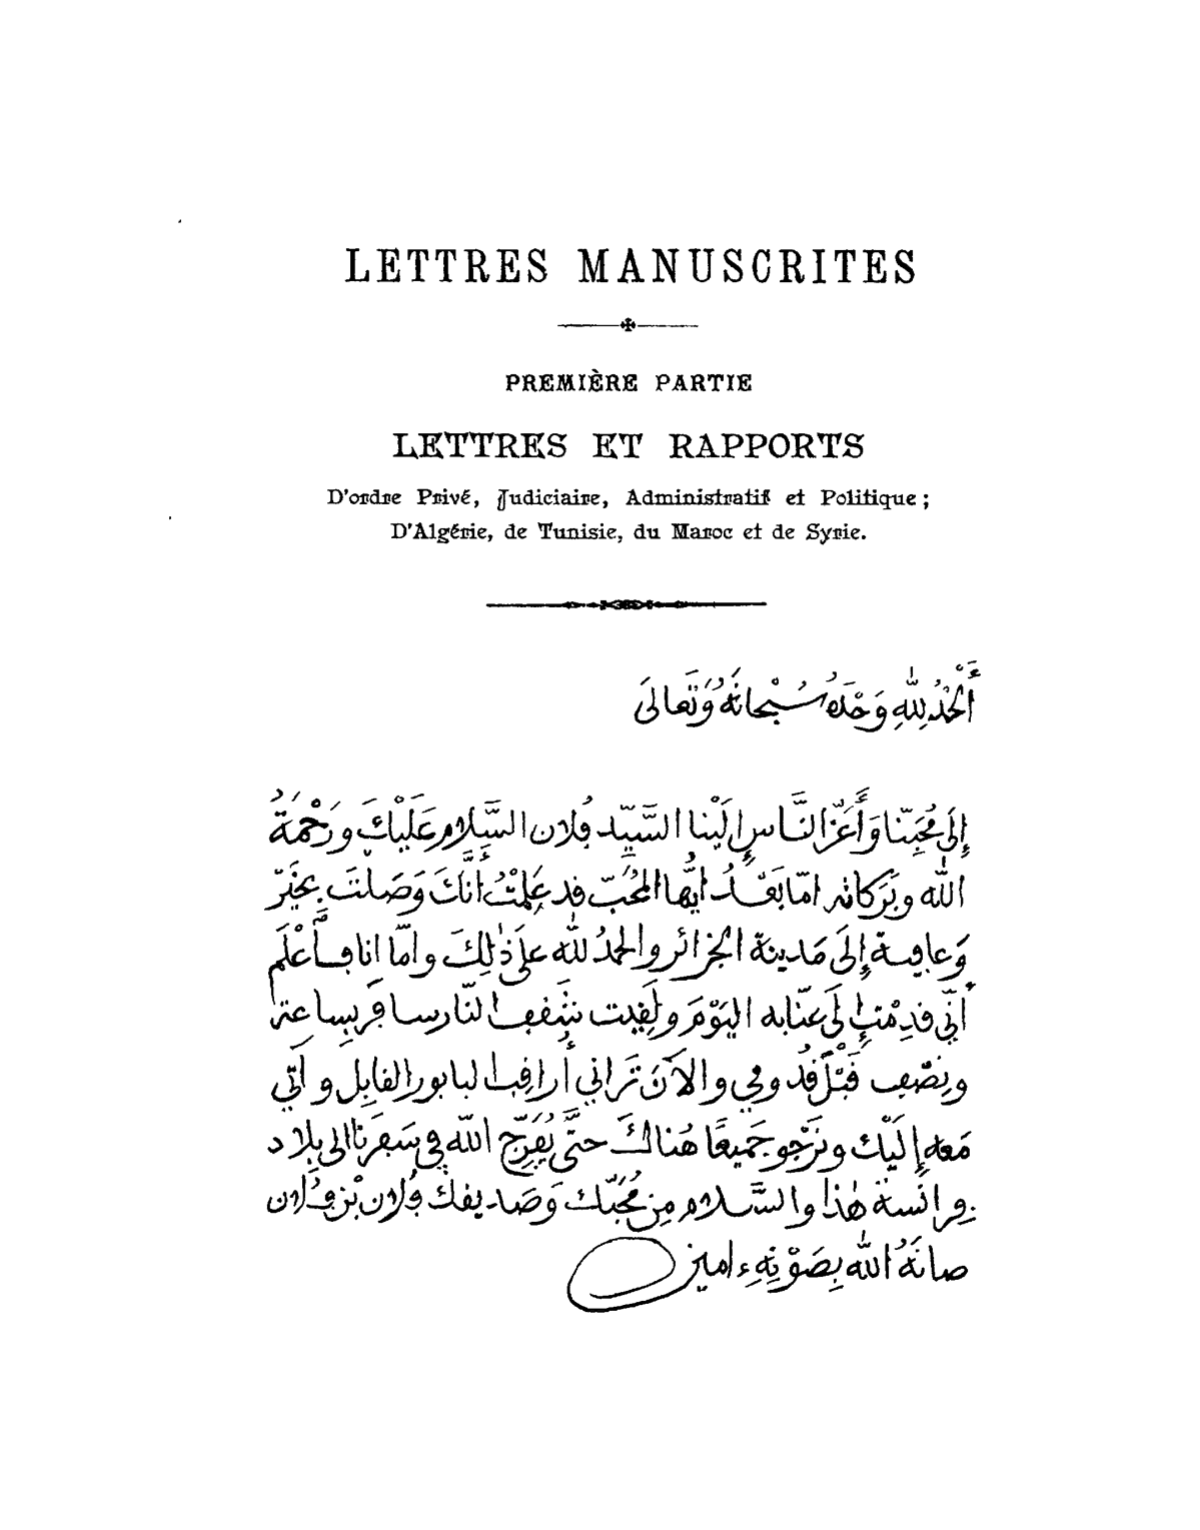 LETTRES MANUSCRITES
PREMIÈRE PARTIE
LETTRES ET RAPPORTS
D'ordre Privé, Judiciaire, Administratif et Politique ;
D'Algérie, de Tunisie, du Maroc et de Syrie.
أَلْحَمْدُ لِلهِ وَحْدَهُ سُبْحَانَهُ وَتَعَالَى
إِلَى مُحِبِّنَا وَأَعَزِّ النَّاسِ إِلَيْنا السَّيِّد فُلان السَّلام عَلَيْكَ ورَحْمَةُ
الله وبَرَكاته امّا بَعْدُ أيُّها المُحِبّ فد عَلِمْتُ أنَّكَ وَصَلتَ بِخَيْر
وَعافية إِلَى مَدينة الجزائر والحمدُ لله علَى ذٰلِكَ وامّا انا فَأَعْلَم
أنّي فدِمْت إِلَى عنّابه اليَوْمَ ولَفِيت شفف النّار سافر بِساعة
ونِصْف فَبْلَ فُدومي والآنَ تَراني أرافِب البابور الفابِل وآتي
مَعه إِلَيْك ونَرْجو جَميعًا هُناكَ حتَّى يُفَرِّج الله في سَفَرنا الى بلاد
فرانسة هٰذا والسَّلام مِن مُحِبّك وَصَديفك فُلان بْن فُلان
صانَهُ الله بِصَوْنِهِ ءامين